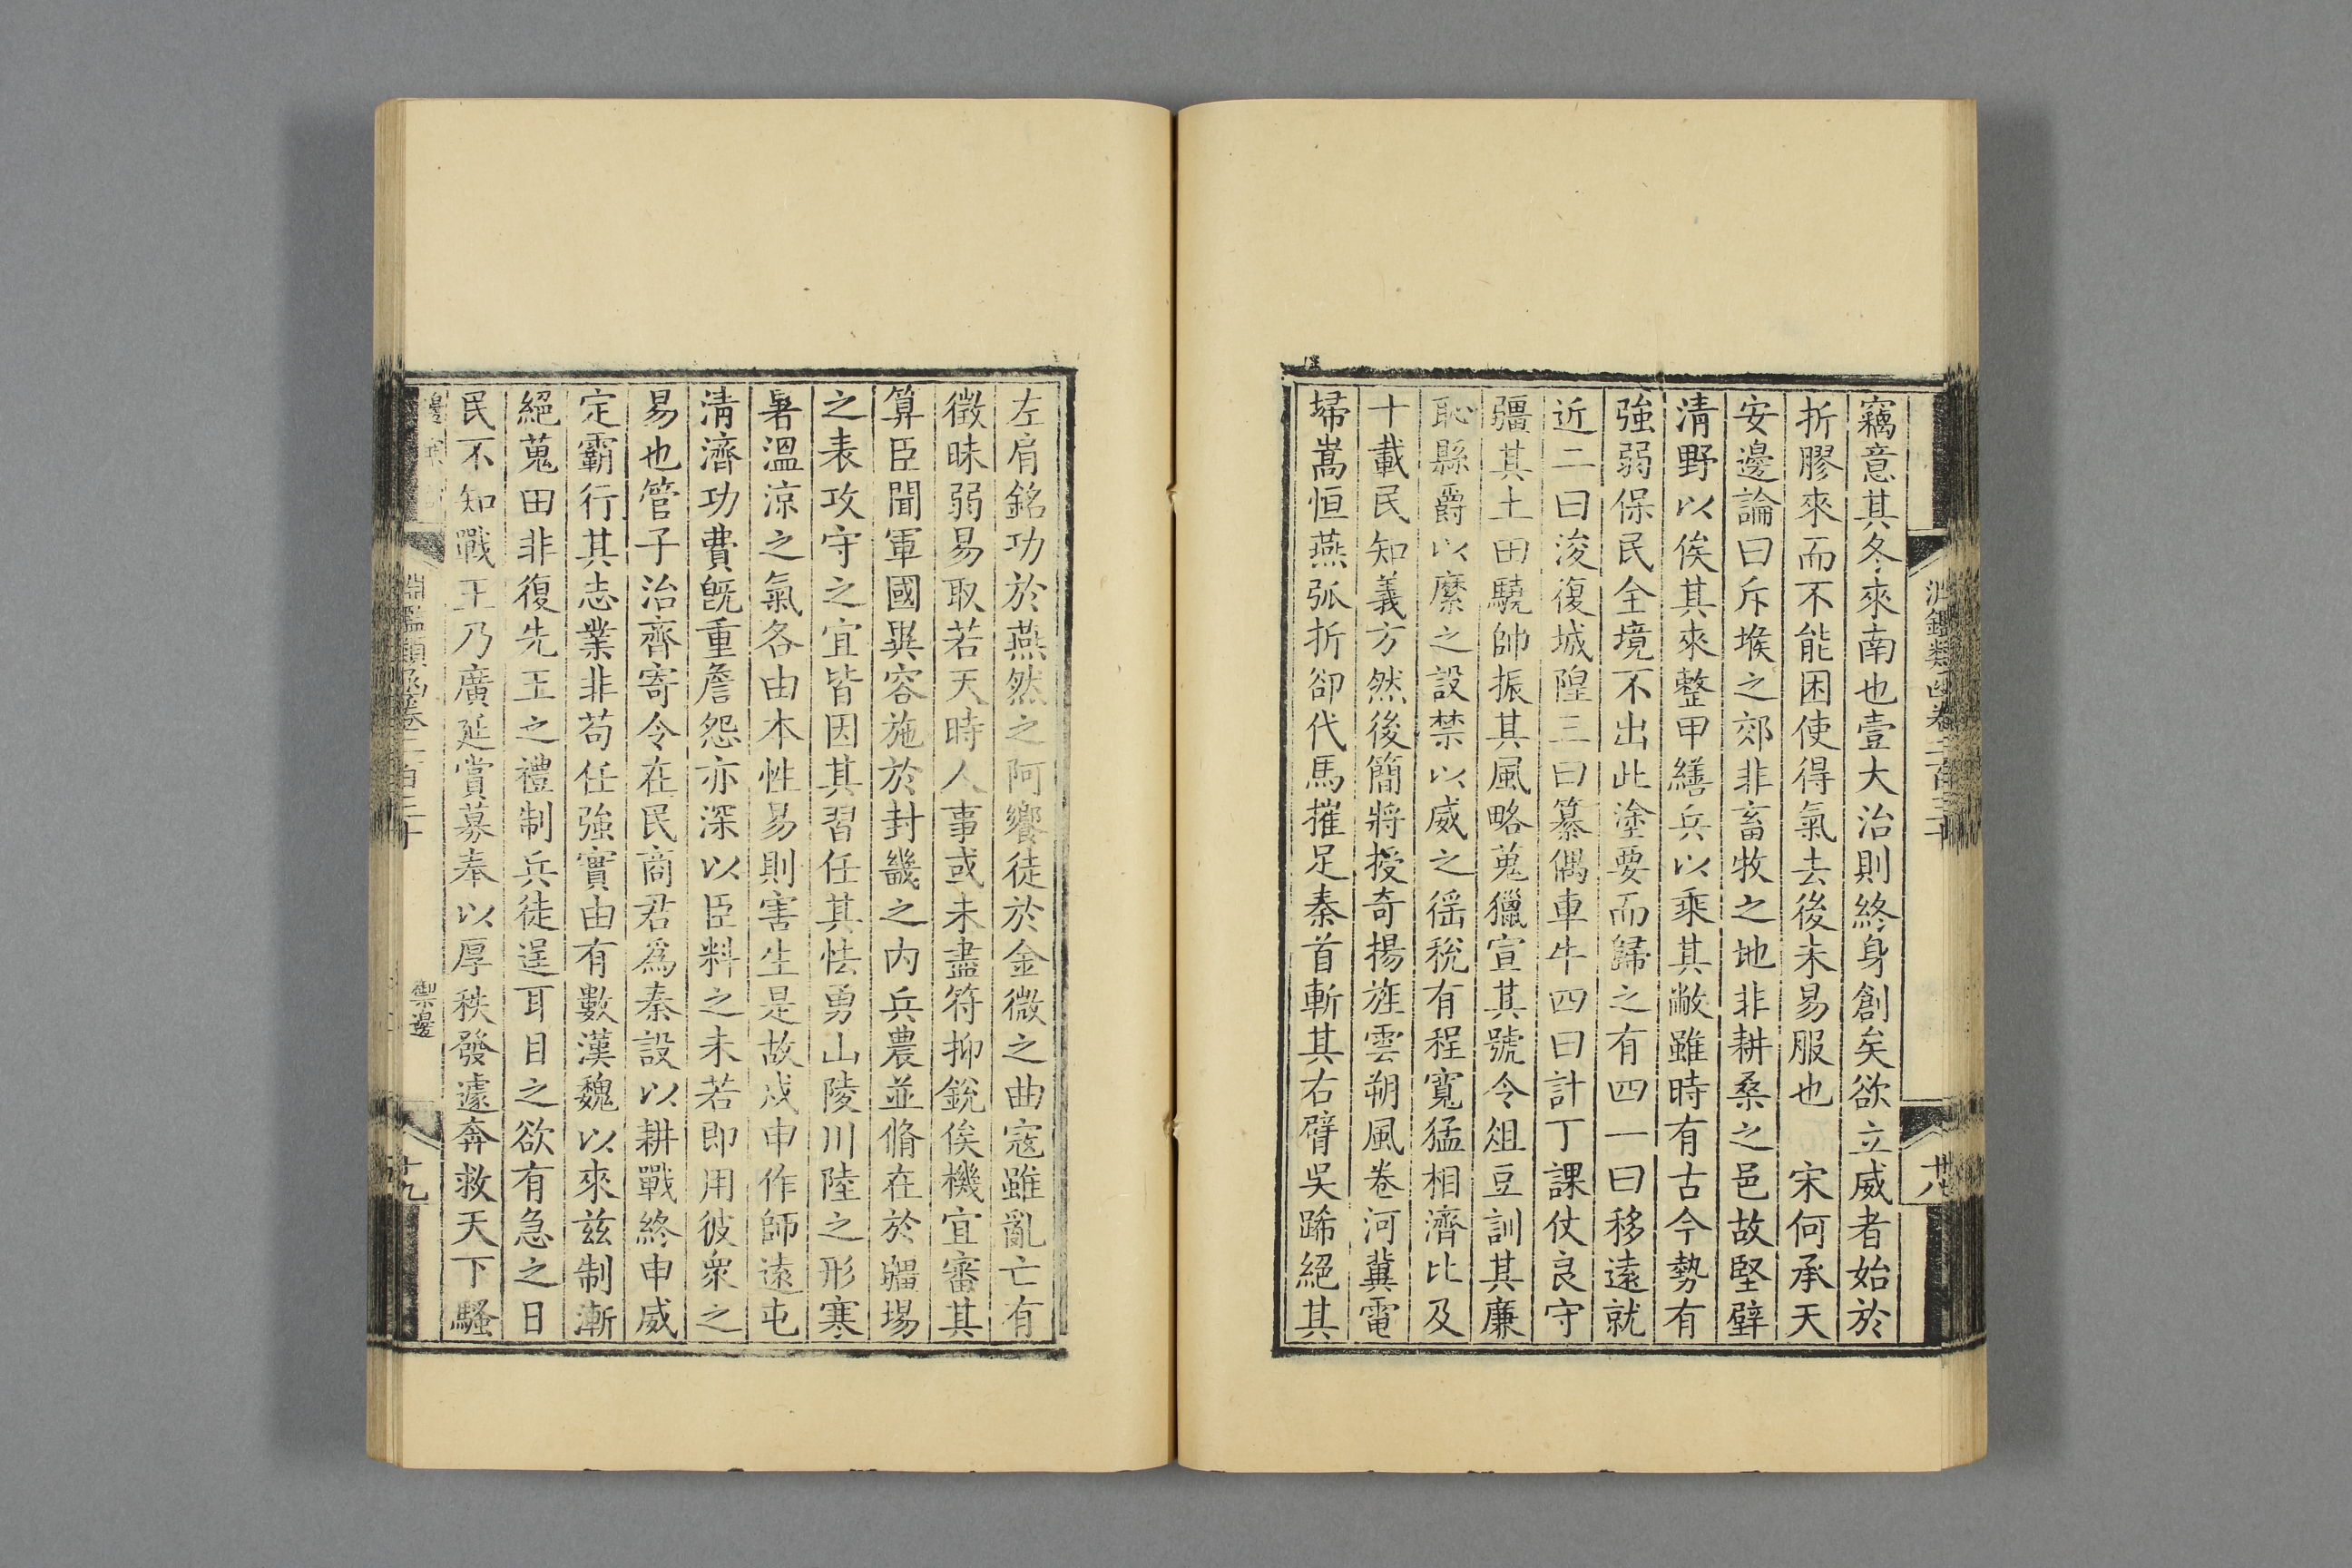 竊意其冬來南也壹大治則終身創矣欲立威者始於
折膠來而不能困使得氣去後未易服也　宋何承天
安邊論曰斥堠之郊非畜牧之地非耕桑之邑故堅壁
清野以俟其來整甲繕兵以乘其敝雖時有古今勢有
強弱保民全境不出此塗要而歸之有四一曰移遠就
近二曰浚復城隍三曰纂偶車牛四曰計丁課仗良守
疆其土田驍帥振其風略蒐獵宣其號令俎豆訓其廉
恥縣爵以縻之設禁以威之徭稅有程寬猛相濟比及
十載民知義方然後簡將授奇揚旌雲朔風卷河冀電
埽嵩恒燕弧折卻代馬摧足秦首斬其右臂吳蹏絕其
左肩銘功於燕然之阿饗徒於金微之曲寇雖亂亡有
徵昧弱易取若天時人事或未盡符抑銳俟機宜審其
算臣聞軍國異容施於封畿之內兵農並脩在於疆埸
之表攻守之宜皆因其習任其怯勇山陵川陸之形寒
暑溫涼之氣各由本性易則害生是故戍申作師遠屯
清濟功費旣重詹怨亦深以臣料之未若即用彼衆之
易也管子治齊寄令在民商君爲秦設以耕戰終申威
定霸行其志業非苟任強實由有數漢魏以來兹制漸
絕蒐田非復先王之禮制兵徒逞耳目之欲有急之日
民不知戰王乃廣延賞募奉以厚秩發遽奔救天下騷
淵鑑類函卷二百三十
禦邊
十九